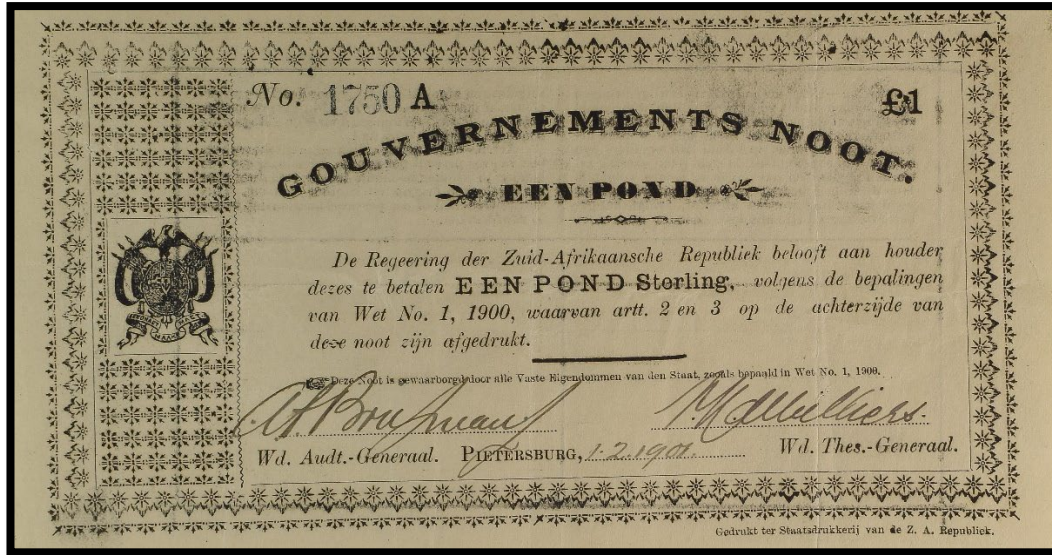 No. 1750 A £1
GOUVERNEMENTS NOOT.
EEN POND
De Regeering der Zuid-Afrikaansche Republiek belooft aan houder
dezes te betalen EEN POND Sterling, volgens de bepalingen
van Wet No. 1, 1900, waarvan artt. 2 en 3 op de achterzijde van
deze noot zijn afgedrukt.
Deze Noot is gewaarborgd door alle Vaste Eigendommen van den Staat, zooals bepaald in Wet No. 1, 1900.
Wd. Audt.-Generaal. PIETERSBURG, 1.2.1901. Wd. Thes.-Generaal.
Gedrukt ter Staatsdrukkerij van de Z. A. Republiek.